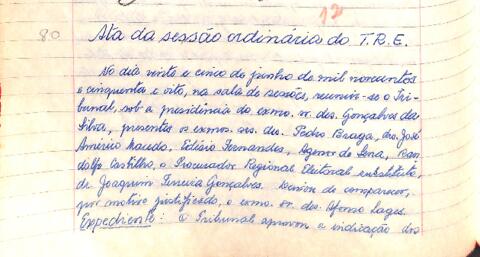 12
80
Ata da sessão ordinária do T.R.E.
No dia vinte e cinco de junho de mil novecentos
e cinquenta e oito, na sala de sessões, reuniu-se o Tri-
bunal, sob a presidência do exmo. sr. des. Gonçalves da
Silva, presentes os exmos. srs. des. Pedro Braga, drs. José
Américo Macedo, Edésio Fernandes, Agenor de Sena, Ran-
dolfo Castilho, o Procurador Regional Eleitoral substituto,
dr. Joaquim Ferreira Gonçalves. Deixou de comparecer,
por motivo justificado, o exmo. sr. des. Afonso Lages.
Expediente: O Tribunal aprovou a indicação dos